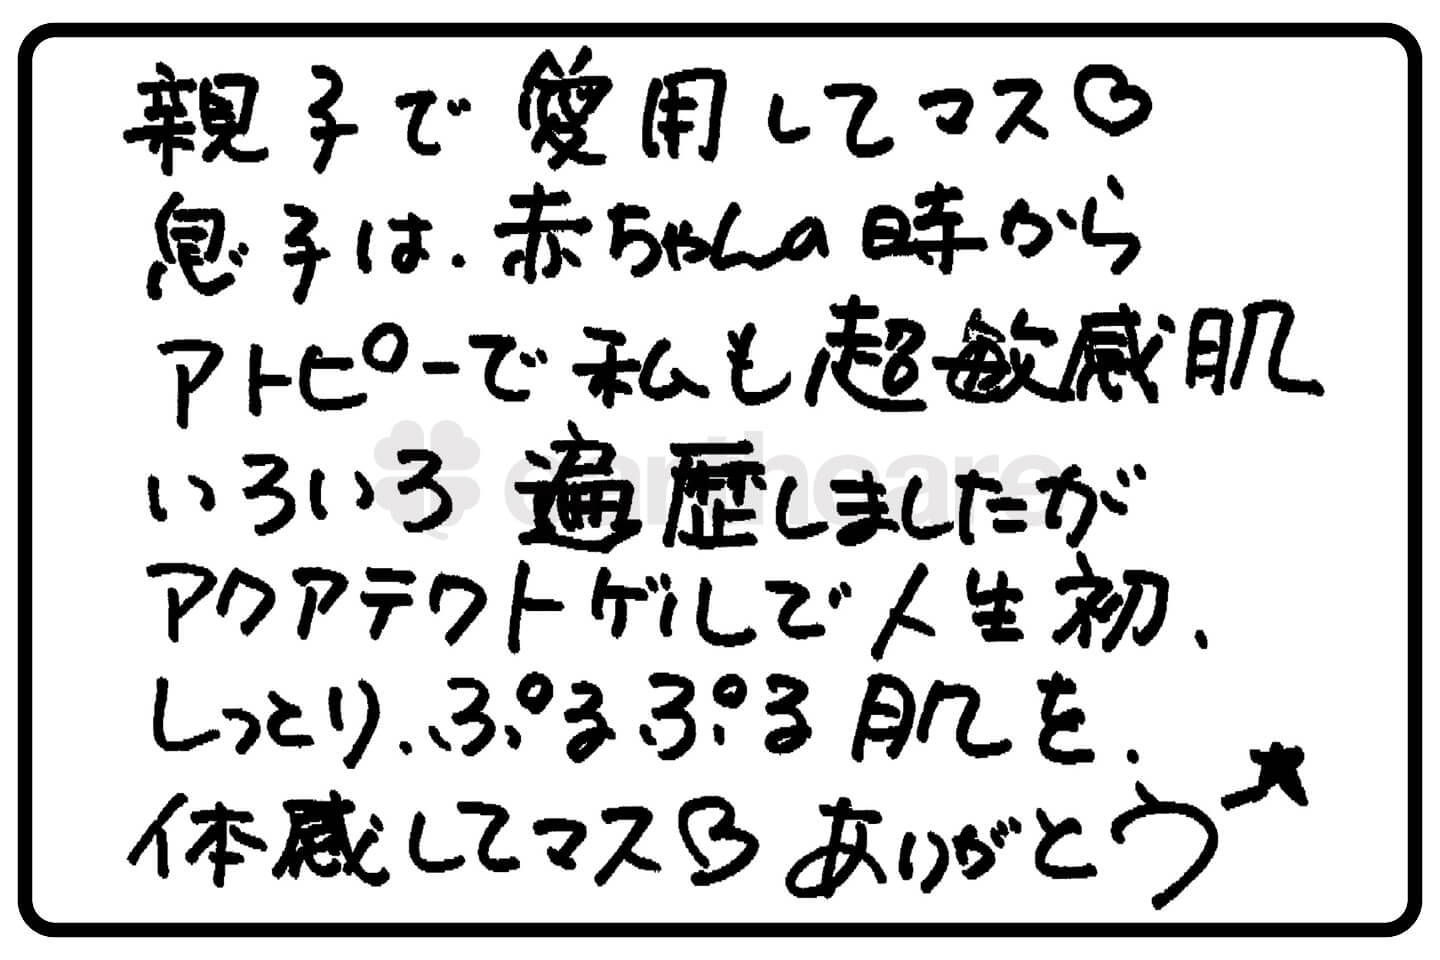 親子で愛用してマス♡
息子は、赤ちゃんの時から
アトピーで私も超敏感肌
いろいろ遍歴しましたが
アクアテクトゲルで人生初、
しっとり、ぷるぷる肌を、
体感してマス♡ ありがとう★
earthcare